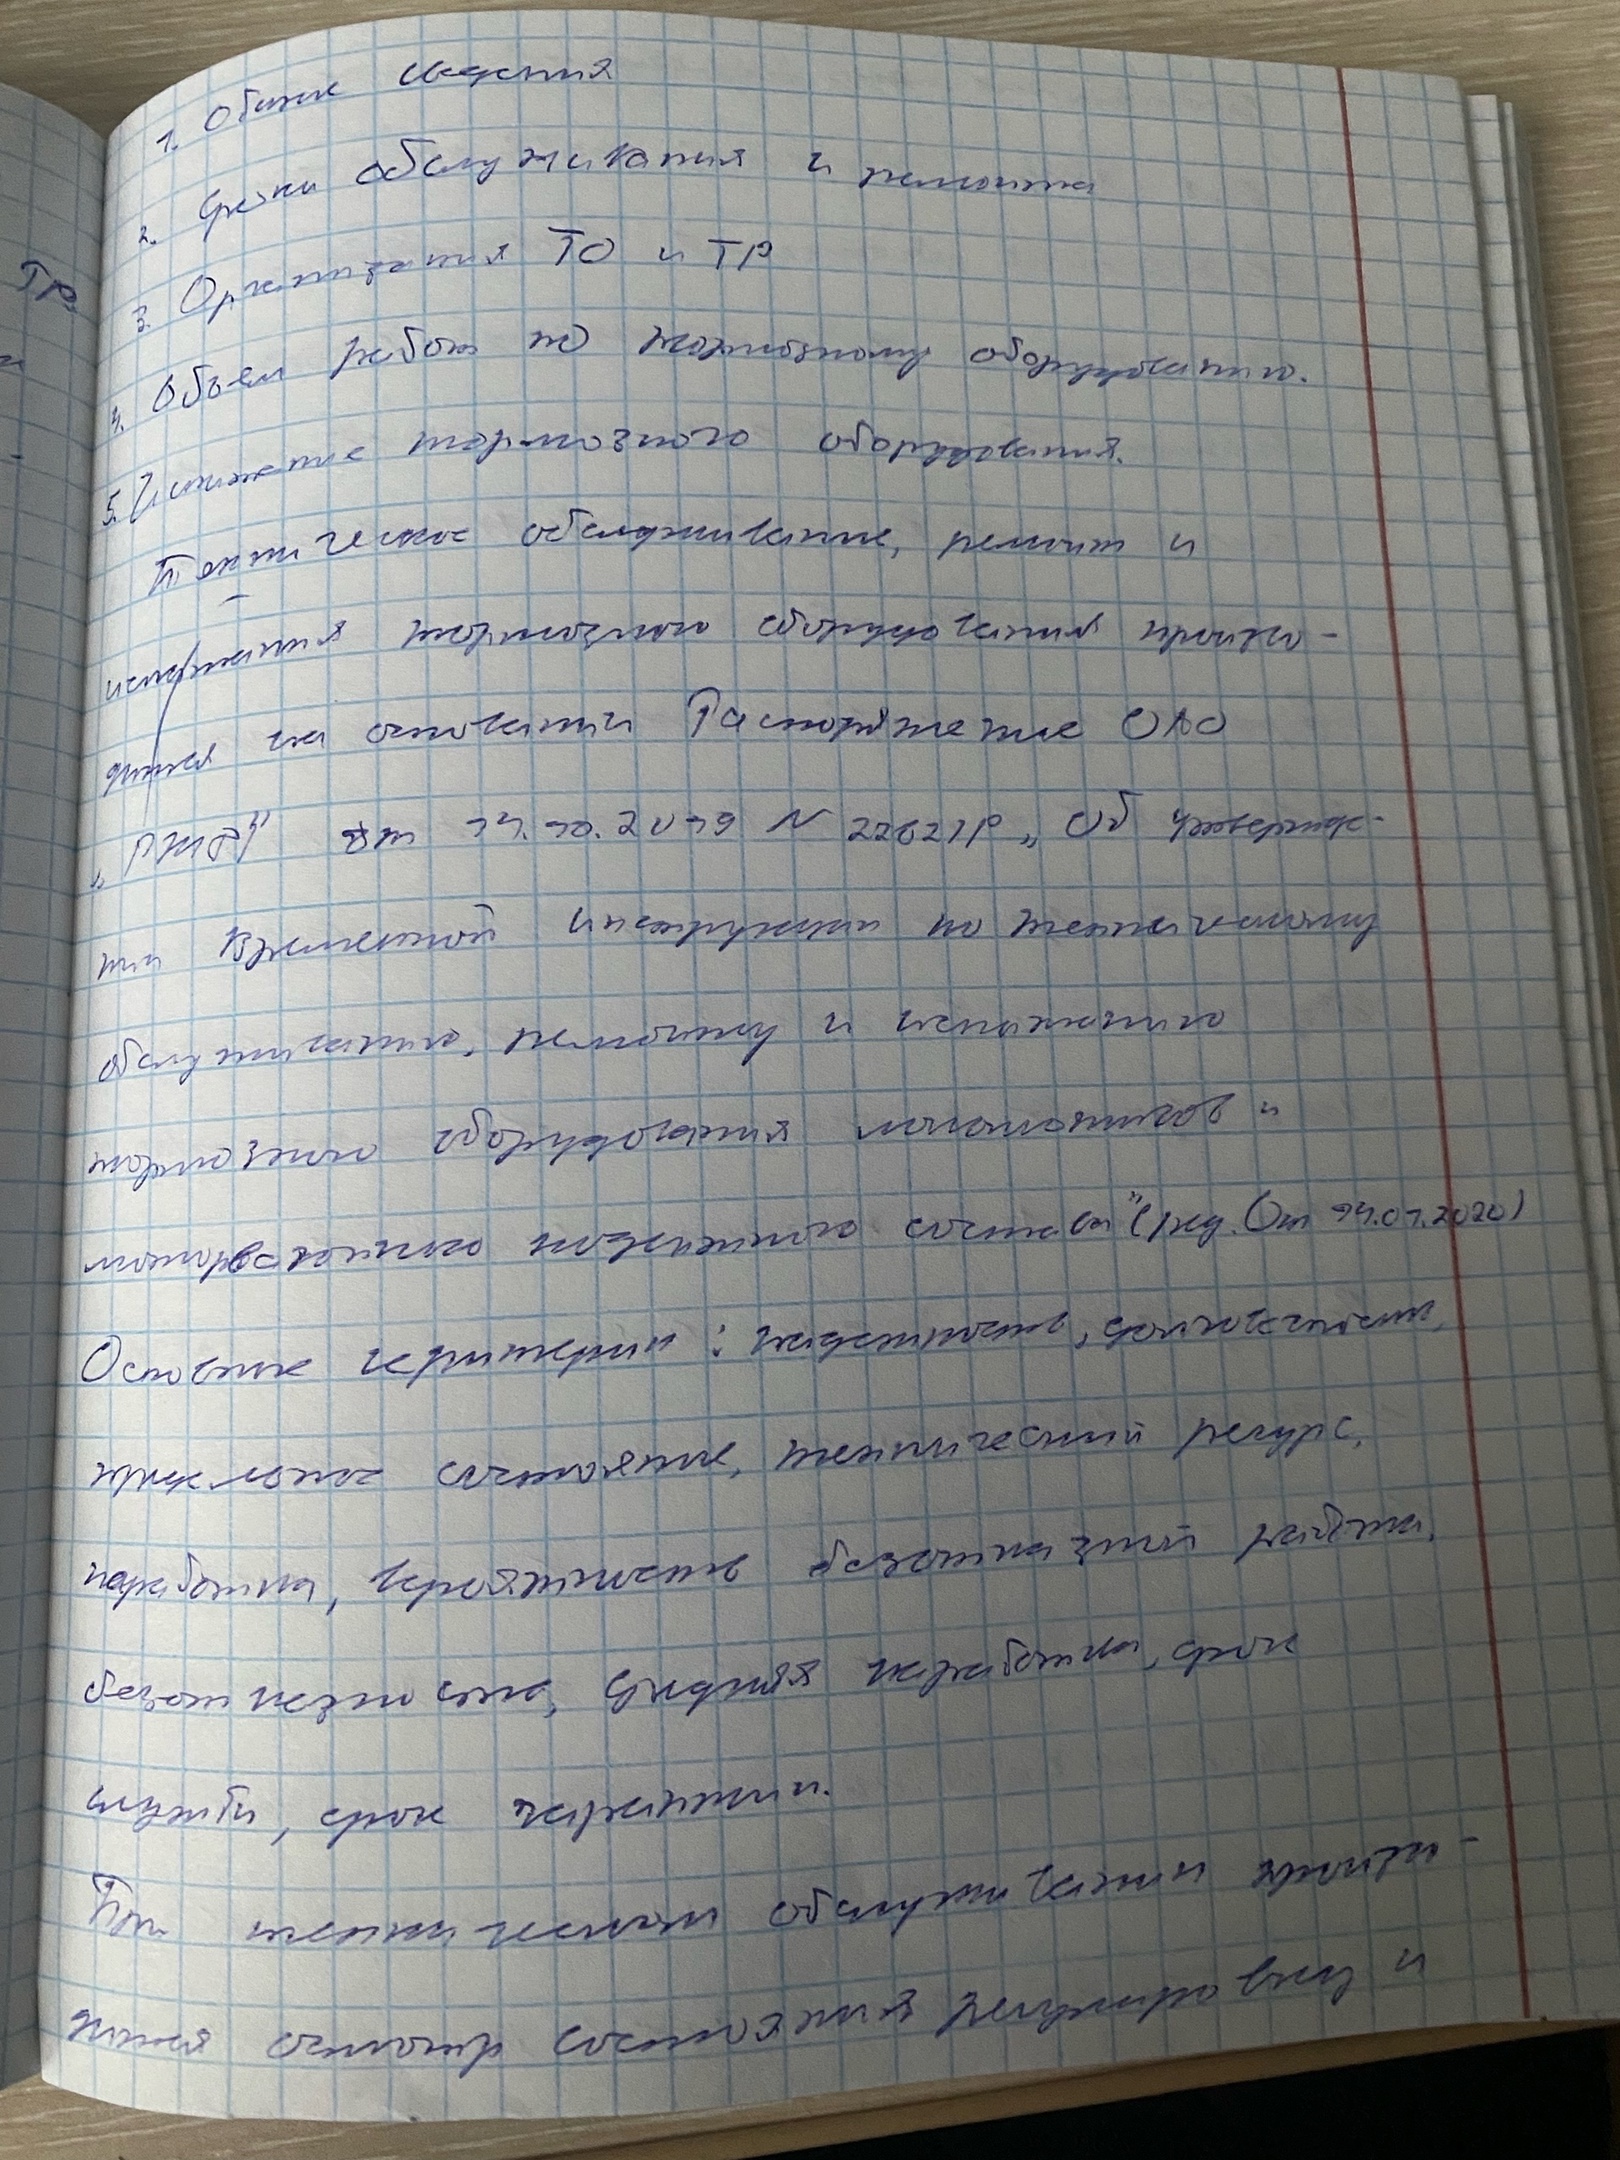 ТР.
и
-
1. Общие сведения
2. Сроки обслуживания и ремонта
3. Организация ТО и ТР
4. Объем работ по тормозному оборудованию.
5. Испытание тормозного оборудования.
Техническое обслуживание, ремонт и
испытания тормозного оборудования произво-
дится на основании Распоряжение ОАО
„РЖД" от 14.10.2019 N 2262/р „Об утвержде-
нии Временной инструкции по техническому
обслуживанию, ремонту и испытанию
тормозного оборудования локомотивов и
моторвагонного подвижного состава" (ред. От 14.01.2020)
Основные критерии: надежность, долговечность,
предельное состояние, технический ресурс,
наработка, вероятность безотказной работы,
безотказность, средняя наработка, срок
службы, срок гарантии.
При техническом обслуживании произво-
дится осмотр состояния регулировку и